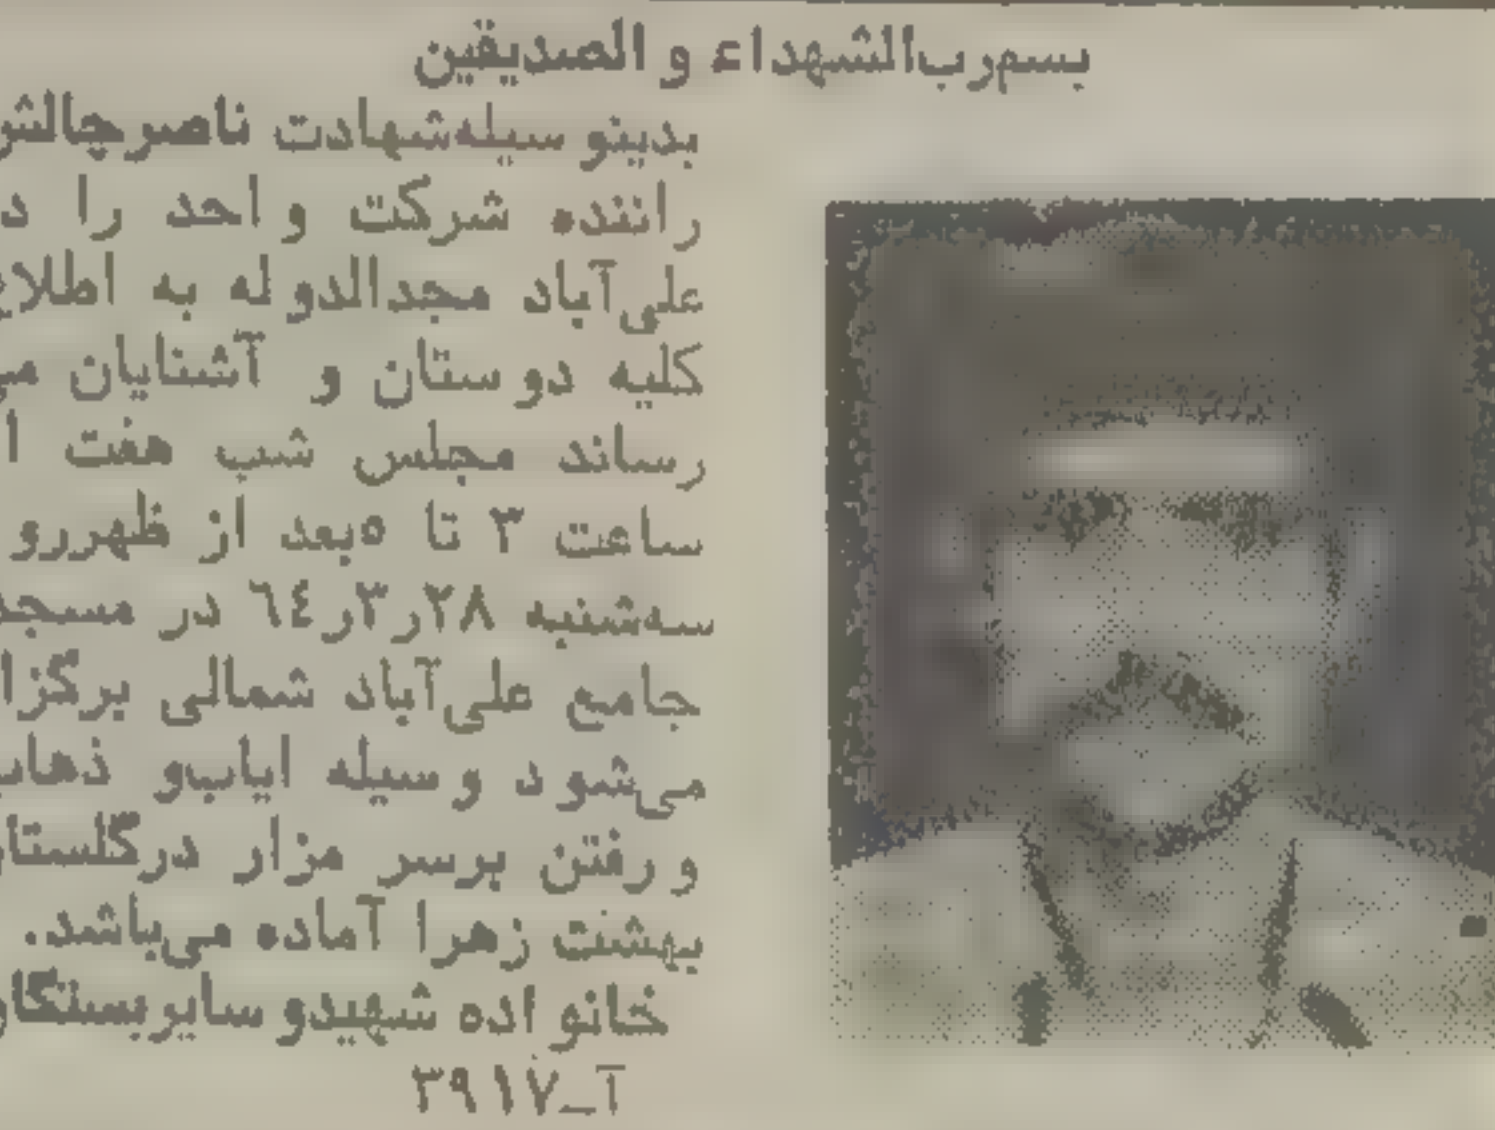 بسم‌رب‌الشهداء و الصدیقین
بدینو سیله‌شهادت ناصر چالش
راننده شرکت واحد را د
علی‌آباد مجدالدو له به اطلاع
کلیه دوستان و آشنایان می
رساند مجلس شب هفت ا
ساعت ۳ تا ۵بعد از ظهررو
سه‌شنبه ۲۸ر۳ر۶۴ در مسجد
جامع علی‌آباد شمالی برگزا
می‌شود وسیله ایاب‌و ذهاب
و رفتن برسر مزار درگلستا
بهشت زهرا آماده می‌باشد.
خانواده شهیدو سایربستگا
آ_۳۹۱۷